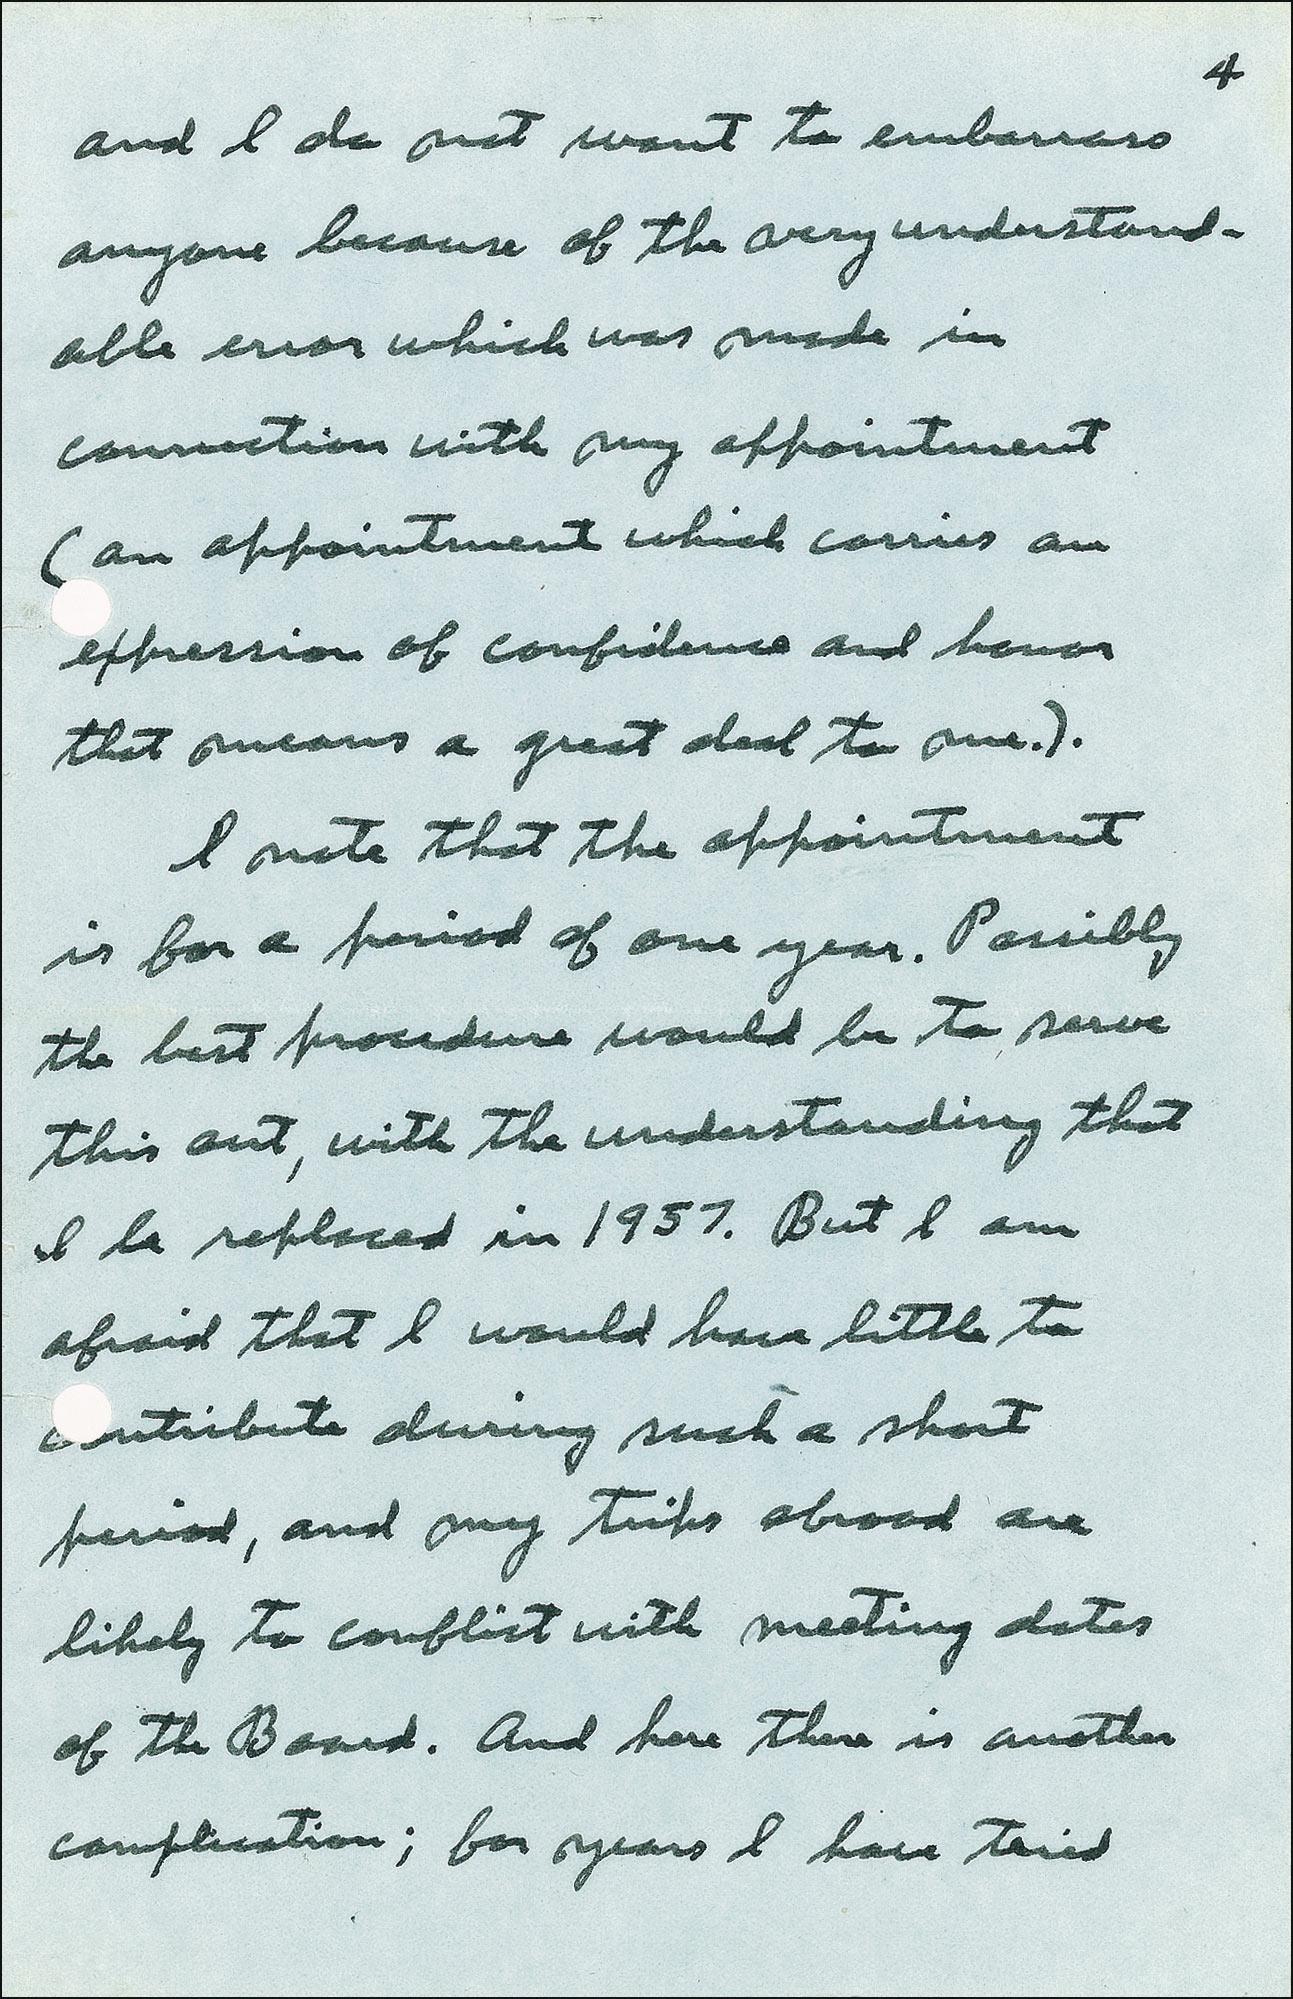 4
and I do not want to embarrass
anyone because of the very understand-
able error which was made in
connection with my appointment
(an appointment which carries an
expression of confidence and honor
that means a great deal to me.).
I note that the appointment
is for a period of one year. Possibly
the best procedure would be to serve
this out, with the understanding that
I be replaced in 1957. But I am
afraid that I would have little to
contribute during such a short
period, and my trips abroad are
likely to conflict with meeting dates
of the Board. And here there is another
complication; for years I have tried